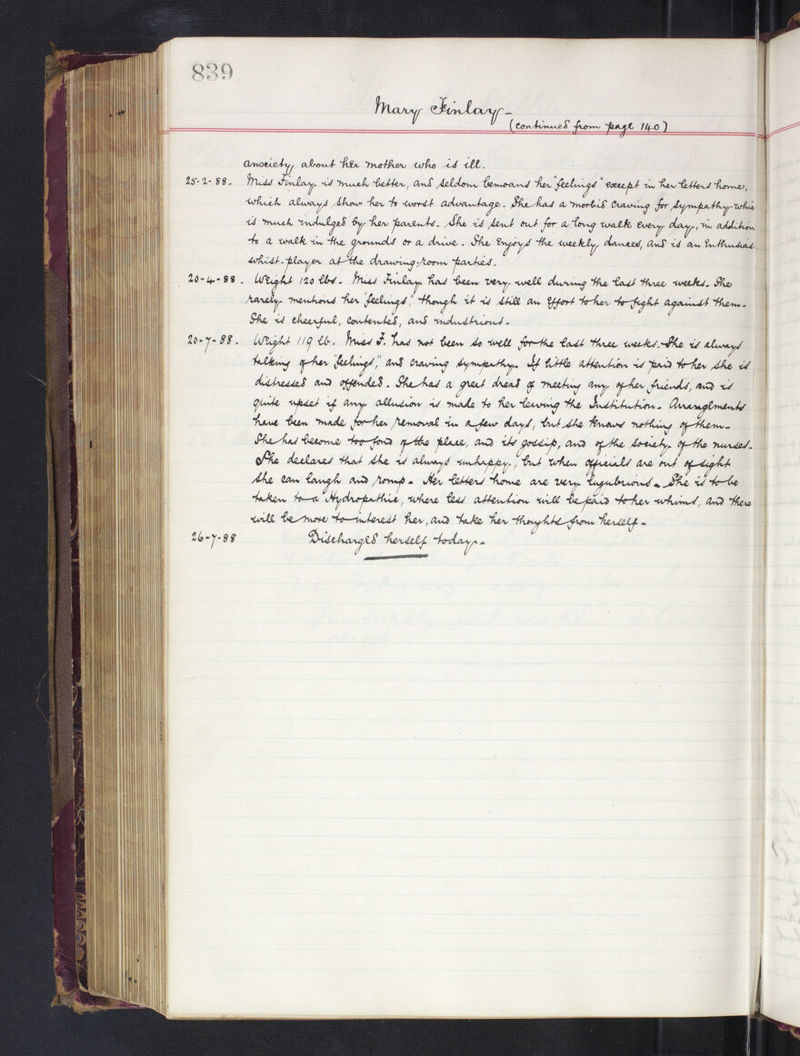 839
Mary Finlay -
(continued from page 140)
anxiety about her mother who is ill.
25-2-88. Miss Finlay is much better, and seldom bemoans her "feelings" except in her letters home,
which always show her to worst advantage. She has a morbid craving for sympathy whic
is much indulged by her parents. She is sent out for a long walk every day, in addition
to a walk in the grounds or a drive. She enjoys the weekly dances, and is an Enthusias
whist-player at the drawing-room parties.
20-4-88. Weight 120 lbs. Miss Finlay has been very well during the last three weeks. She
rarely mentions her "feelings", though it is still an Effort to her to fight against them.
She is cheerful, contented, and industrious.
20-7-88. Weight 119 lb. Miss F. has not been so well for the last three weeks. She is always
talking of her "feelings", and craving sympathy. If little attention is paid to her she is
distressed and offended. She has a great dread of meeting any of her friends, and is
quite upset if any allusion is made to her leaving the Institution. Arrangements
have been made for her removal in a few days, but she knows nothing of them.
She has become too fond of the place, and its gossip, and of the society of the nurses.
She declares that she is always unhappy, but when officials are out of sight
she can laugh and romp. Her letters home are very lugubrious. She is to be
taken to a Hydropathic, where less attention will be paid to her whims, and there
will be more to interest her, and take her thoughts from herself.
26-7-88 Discharged herself today.